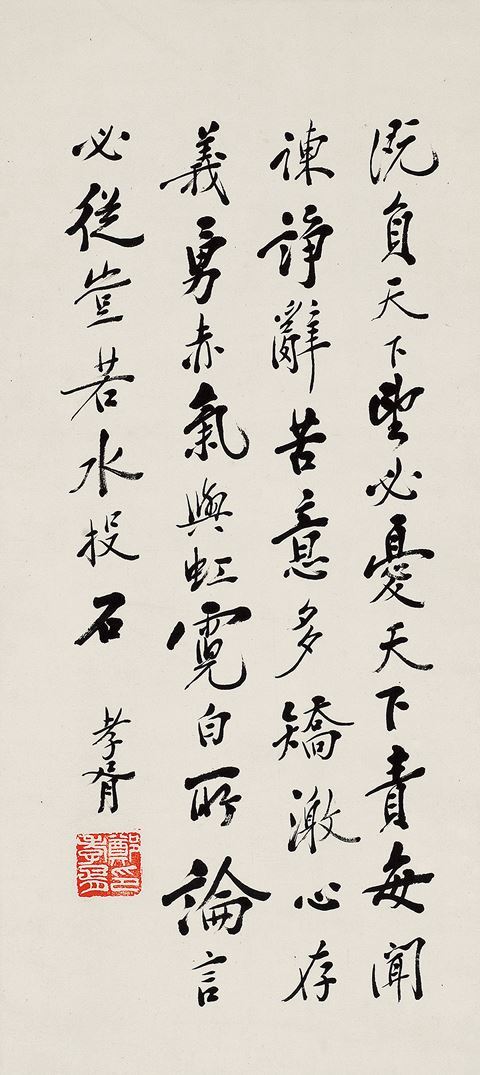 既負天下望必憂天下責每聞
諫諍辭苦意多矯激心存
義勇赤氣與虹霓白所論言
必從豈若水投石
孝胥
鄭印孝胥